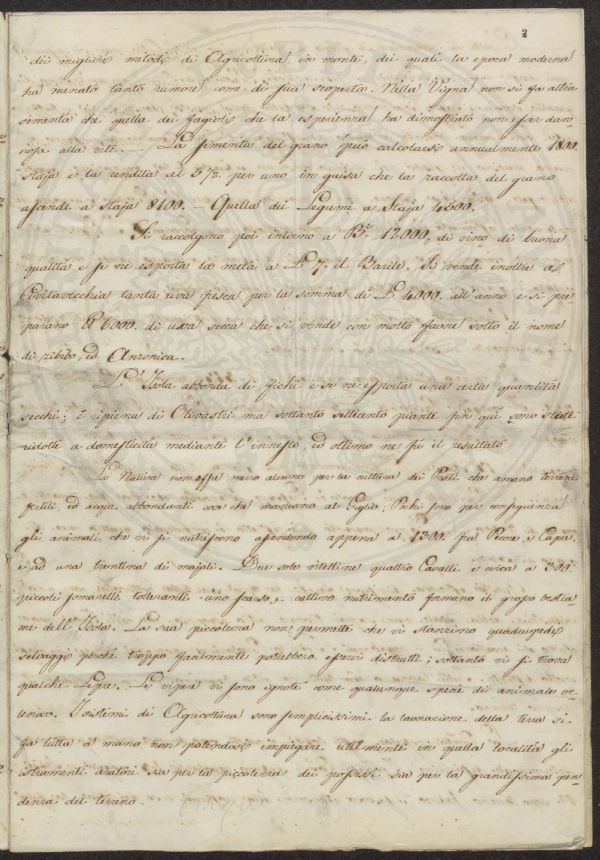 2
dei migliori metodi di Agricoltura in monte, dei quali la epoca moderna
ha menato tanto rumore come di sua scoperta. Nella Vigna non si fa altra
sementa che quella dei fagioli che la esperienza ha dimostrato non esser dan-
nosa alla vite. — La sementa del grano può calcolarsi annualmente 1800.
staja e la rendita al 5 ½ per uno in guisa che la raccolta del grano
ascende a staja 8100. — Quella dei Legumi a Staja 4500.
Si raccolgono poi intorno a B.li 12000. di vino di buona
qualità e se ne esporta la metà a L 7. il Barile. Si vende inoltre a
Civitavecchia tanta uva fresca per la somma di L 4000. all'anno e si pre-
parano 6000. di uva secca che si vende con molto favore sotto il nome
di zibibo, ed Anzonica.
L'Isola abbonda di fichi e se ne esporta una certa quantità
secchi; è ripiena di Olivastri ma soltanto settecento piante fin qui sono state
ridotte a domesticità mediante l'innesto, ed ottimo ne fu il risultato
La Natura non offre mezzo alcuno per la cultura dei Prati che amano terreni
fertili, ed acque abbondanti cosa che mancano al Giglio; Pochi sono per conseguenza
gli animali che vi si nutriscono ascendendo appena a 1300. fra Pecore, e Capre,
e ad una trentina di majali. Due sole vitelline quattro Cavalli e circa a 300.
piccoli somarelli tolleranti uno scarso, e cattivo nutrimento formano il grosso bestia-
me dell'Isola. La sua piccolezza non permette che vi stanzino quadrupedi
selvaggi perchè troppo facilmente potrebbero esservi distrutti; soltanto vi si trova
qualche Lepre. Le vipere vi sono ignote come qualunque specie di animale ve-
lenoso. I sistemi di Agricoltura sono semplicissimi la lavorazione della terra si
fa tutta a mano non potendosi impiegare utilmente in quella località gli
istrumenti aratori sia per la piccolezza dei possessi sia per la grandissima pen-
denza del terreno.